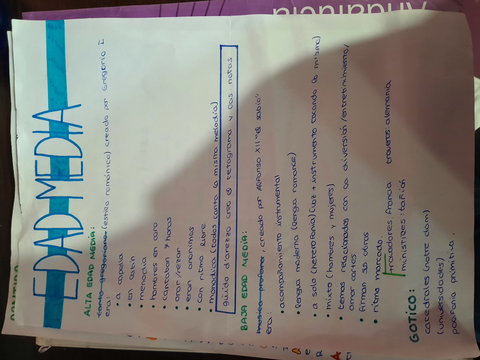 Andalucía
EDAD MEDIA
ALTA EDAD MEDIA:
canto gregoriano (estilo románico) creado por Gregorio I
era:
• a capela
• en latín
• hombres en coro
• cantaban 7 horas
• orar/rezar
• eran anonimas
• con ritmo libre
• monodica (todos canta la misma melodia)
guido d'arezzo creo el tetragrama y las notas
BAJA EDAD MEDIA:
musica profana: creada por Alfonso XII "el sabio"
era:
• acompañamiento instrumental
• lengua moderna (lengua romance)
• a solo (heterofonia) (voz + instrumento tocando lo mismo)
• mixto (hombres y mujeres)
• temas relacionados con la diversión/entretenimiento/
amor cortes
• firman sus obras
• ritmo marcado
trovadores: francia troveros alemania
ministriles: tocan
GOTICO:
catedrales (notre dam)
(universidades)
polifonia primitiva: